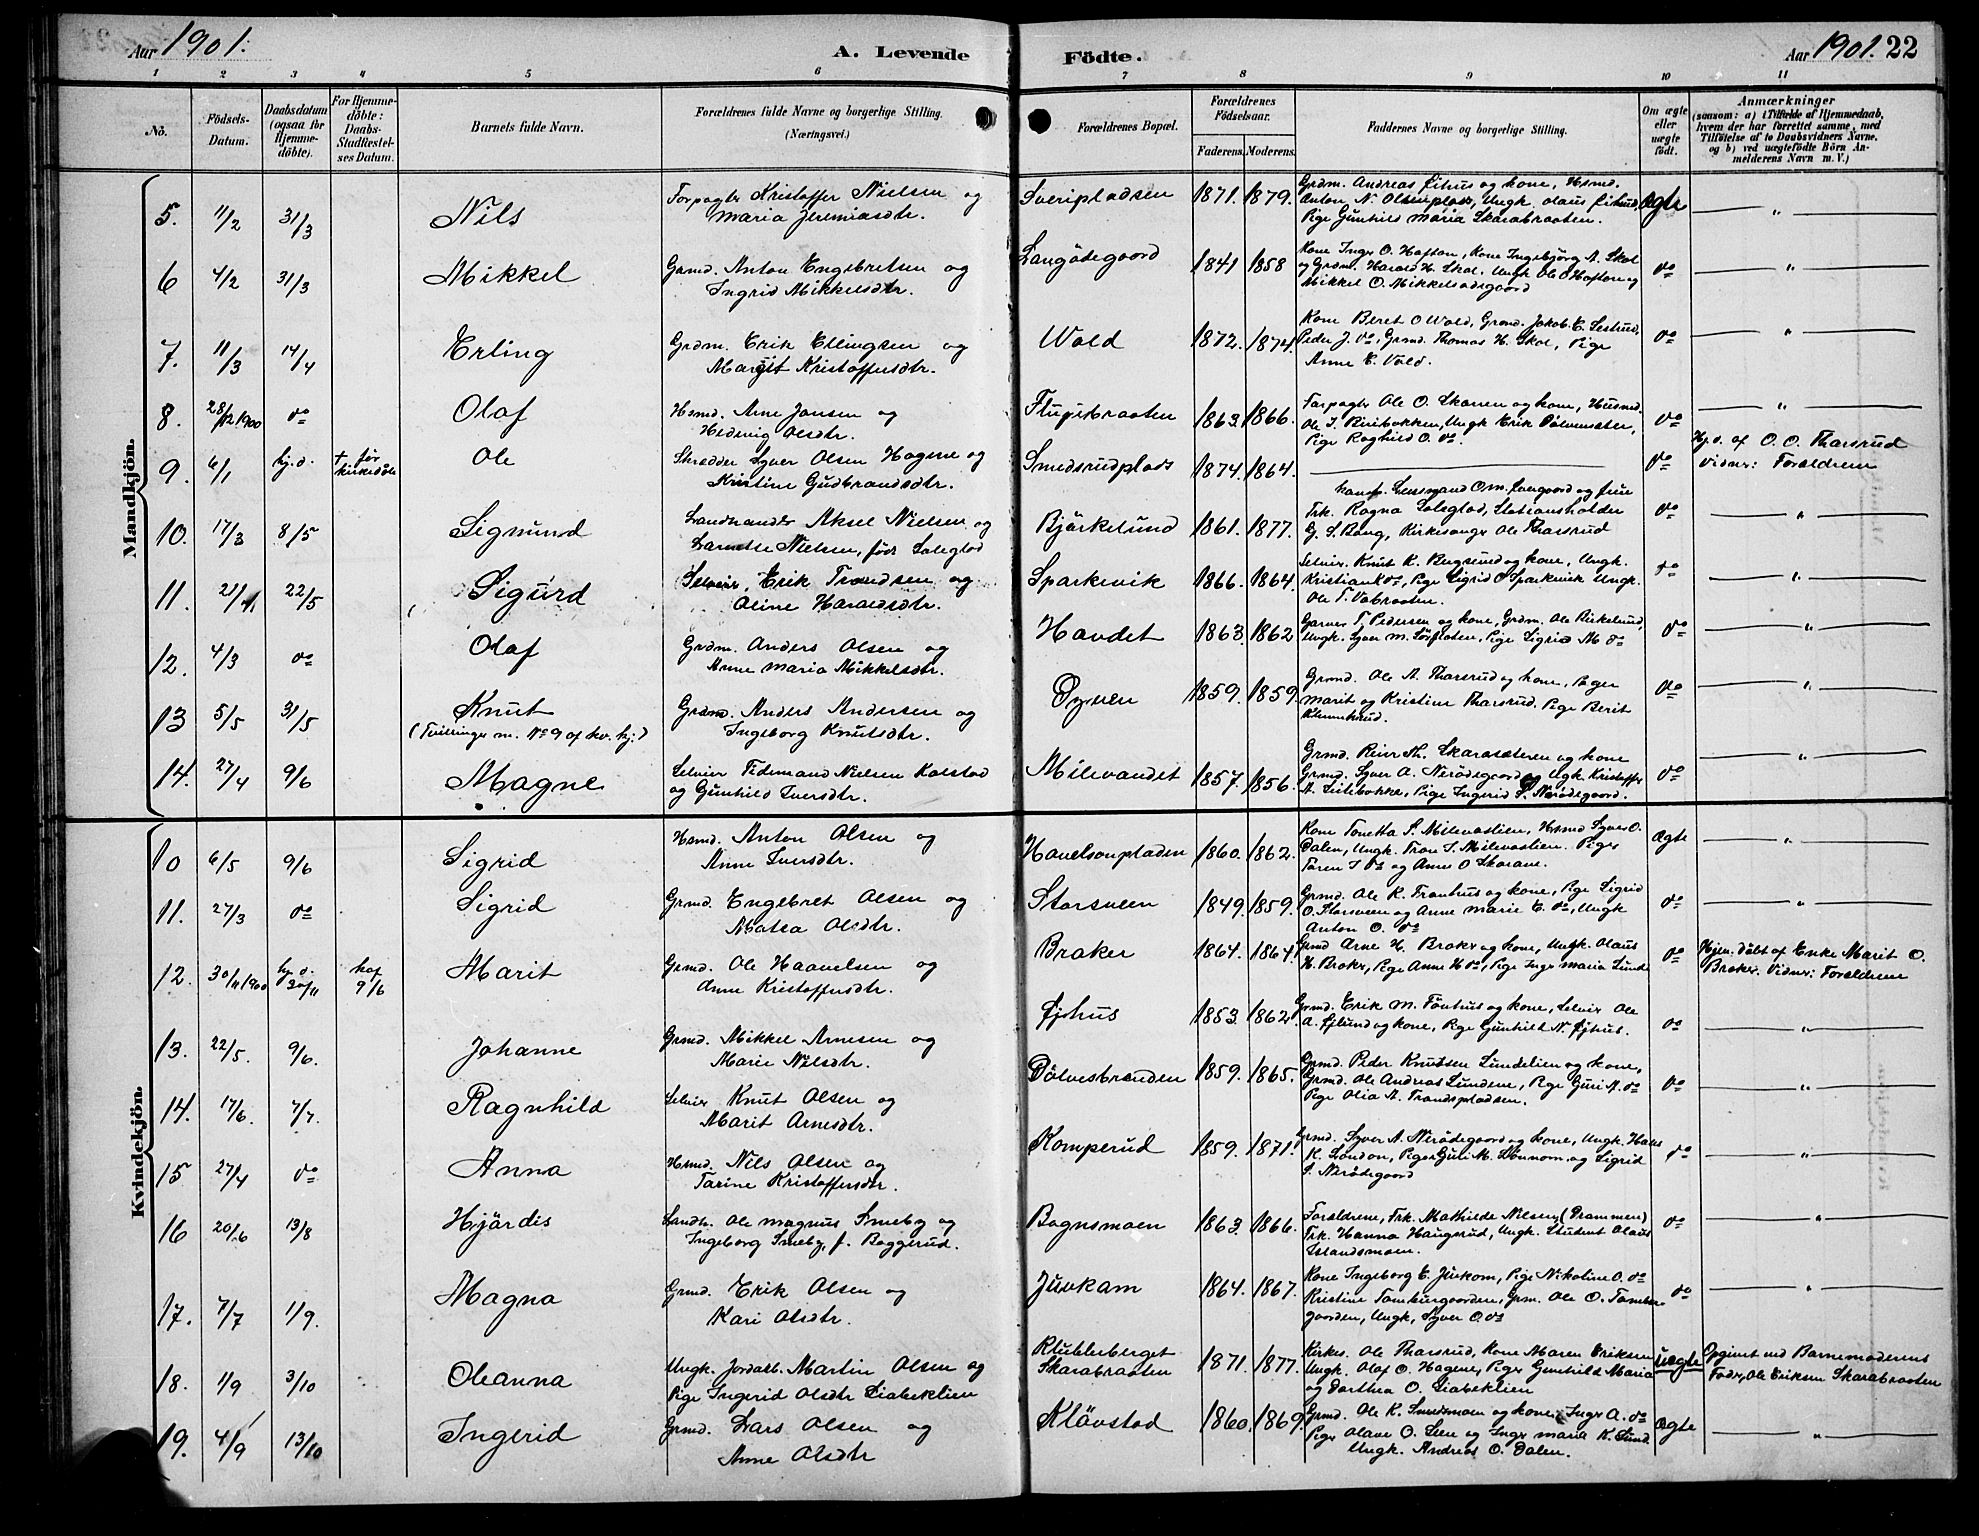 Aar 1901.
A. Levende
Födte.
Aar 1901. 22
1 2 3 4 5 6 7 8 9 10 11
No.
Födsels-
Datum.
Daabsdatum
(ogsaa for
Hjemme-
döbte).
For Hjemme-
döbte:
Daabs-
Stadfæstel-
ses Datum.
Barnets fulde Navn.
Forældrenes fulde Navne og borgerlige Stilling.
(Næringsvei.)
Forældrenes Bopæl.
Forældrenes
Födselsaar.
Faderens. Moderens.
Faddernes Navne og borgerlige Stilling.
Om ægte
eller
uægte
födt.
Anmærkninger
(saasom: a) i Tilfælde af Hjemmedaab,
hvem der har forrettet samme, med
Tilföielse af to Daabsvidners Navne,
og b) ved uægtefödte Börn An-
melderens Navn m. V.)
Mandkjön.
5. 11/2 31/3 Nils
Forpagter Kristoffer Nielsen og
Maria Jeremiasdtr.
1871. 1879.
Grdm. Andreas og kone, Hsmd.
Pige Gunhild Maria Skarabraaten.
Ægte
6 4/2 31/3 Mikkel
Gamd. Anton Engebretsen og
Ingrid Mikkelsdtr.
Langödegaard 1841 1858
Kone Inger O. Hafton, Kone Ingebjörg A. Skol
og Grdm. Harald H. Skol, Ungk. Ole O Haftore og
Mikkel O. Mikkelsödegaard
do
7. 11/3 14/4 Erling
Grdm. Erik Ellingsen og
Margit Kristoffersdtr.
Wold 1872. 1874.
Kone Beret O Wold, Grmd. Jakob E. Sestrud,
Peder J. do, Grmd. Thomas H. Skol, Pige
Anne E. Vold.
do
8. 28/12 1900 do Olaf
Hsmd. Arne Jansen og
Hedevig Olsdtr.
1863. 1866.
Forpagter Ole O. Skaren og kone, Husmd.
Pige Raghild O. do
do
9. 6/1 hj.d. † för kirkedåb
Ole
Skrædder Syver Olsen Hagene og
Kristine Gudbrandsdtr.
Smedsrudplads 1874. 1864.
do
Hj.d. af O. O. Tharsrud
Vidner: Forældrene
10. 17/3 8/5 Sigmund
Landhandler Aksel Nielsen og
Nielsen, född Soleglad
Bjärkelund 1861. 1877.
Frk. Ragna Soleglad, Stationsholder
G. S. Bang, Kirkesanger Ole Tharsrud
do
11. 22/5 Sigurd
Selveier Erik Trondsen og
Oline Haraldsdtr.
Sparkevik 1866. 1864.
Selveier Knut K. Bergsund og kone, Ungk.
Kristian K do, Pige Sigrid O Sparkevik Ungk.
Ole T. Vabraaten.
do
12. 4/3 do Olaf
Grdm. Anders Olsen og
Anne Maria Mikkelsdtr.
Havdet 1863. 1862
Garver T. Pedersen og kone, Grdm. Ole Birkelund,
Ungk. Syver M. Sörflaten, Pige Sigrid M do
do
13 5/5 31/5 Knut
(Tvillinger m. No 9 af kv. kj:)
Grdm. Anders Andersen og
Ingeborg Knutsdtr.
1859. 1859.
Grmd. Ole A. Tharsrud og kone, Piger
Marit og Kristine Tharsrud. Pige Berit
Klemmetsrud.
do
14. 27/4 9/6 Magne
Selveier Tidemand Nielsen Kolstad
og Gunhild Iversdtr.
Milevandet 1857. 1856.
Grmd. Reier Th. Skarasæteren og kone
Grmd. Syver A. Nerödegaard og Ungk. Kristoffer
A. Lislebakke, Pige Ingerid S. Nerödegaard.
do
Kvindekjön.
10 6/5 9/6 Sigrid
Hsmd. Anton Olsen og
Anne Iversdtr.
Havelsonpladen 1860. 1862.
Kone Tonetta S. Milevaslien, Hsmd Syver O.
Dalen, Ungk. Tron S. Milevaslien. Piger
Taren S do og Anne O Skaran.
Ægte
11. 27/3 do Sigrid
Grmd. Engebret Olsen og
Matea Olsdtr.
Storsveen 1849. 1859.
Grmd. Ole K. Tronhus og kone, Pige Sigrid
O. Storsveen og Anne Marie E. do, Ungk
Anton O. do
do
12. 30/11 1900 hj. d. 30/11 9/6
Marit
Grmd. Ole Haavelsen og
Anne Kristoffersdtr.
Braker 1864. 1864.
Grmd Arne H. Braker og kone, Ungk. Olaus
H. Braker, Pige Anne H do, Pige Inger Maria Lunde
do
Hjem. döbt af Enke Marit O.
Braker. Vidner: Forældrene
13. 22/5. 9/6. Johanne
Grmd. Mikkel Arnesen og
Marie Nilsdtr.
Öjhus 1853. 1862.
Grmd. Erik M. Tönhus og kone, Selveier Ole
A. Öjlund og kone, Pige Gunhild N. Öjhus.
do
14. 17/6. 7/7. Ragnhild
Selveier Knut Olsen og
Marit Arnesdtr.
Dölvesbraaden 1859. 1865.
Grmd. Peder Knudsen Lundelien og kone,
Grmd. Ole Andreas Lundene, Pige Guri A. do
Pige Olia A. Trondspladsen.
do
15 27/4 do Anna
Hsmd. Nils Olsen og
Tarine Kristoffersdtr.
Komperud 1859. 1871.
Grmd. Syver A. Nerödegaard og kone, Ungk. Hans
K. Söndon, Piger Guli M. og Sigrid
S. Nerödegaard
do
16 20/6 13/8 Hjördis
Landh. Ole Magnus Smeby og
Ingeborg Smeby, f. Baggerud.
Bagnsmoen 1863. 1866.
Forældrene, Frk. Mathilde Nilsen (Drammen)
Frk. Hanna Haugerud, Ungk. Student Olaus
Islandsmoen.
do
17. 7/7 1/9. Magna
Grmd. Erik Olsen og
Kari Olsdtr.
Juvkam 1864. 1867.
Kone Ingeborg E. Juvkam, Pige Nikoline O. do
gaarden, Ungk, Syver O. do
do
18. 1/9 3/10 Oleanna
Ungk. Jordarb. Martin Olsen og
Pige Ingerid Olsdtr Liabeklien
Klubleberget
Skarabraaten
1871. 1877.
Kirkes. Ole Tharsrud, Kone Maren Eriksen
Ungk. Olaf O. Hagene, Piger Gunhild Maria
og Dorthea O. Liabeklien
uægte
Opgivet ved Barnemoderens
Fader, Ole Eriksen Skarabraaten
19. 4/9 13/10 Ingerid
Grmd. Lars Olsen og
Anne Olsdtr
Klövstad 1860. 1869.
Grmd. Ole K. Smedsmoen og kone, Inger A. do
Piger Olave O. Lien og Inger Maria K. Lund.
Ungk. Andreas O. Dalen.
Ægte